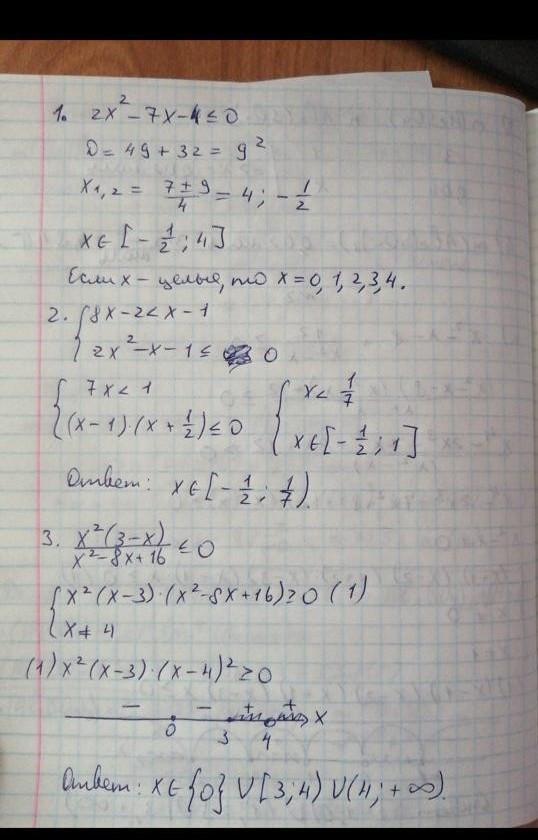 1. 2x² - 7x - 4 ≤ 0
D = 49 + 32 = 9²
x₁,₂ = (7 ± 9)/4 = 4; -1/2
x ∈ [-1/2; 4]
Если x - целые, то x = 0, 1, 2, 3, 4.
2. { 8x - 2 < x - 1
2x² - x - 1 ≤ 0
{ 7x < 1 { x < 1/7
(x - 1)·(x + 1/2) ≤ 0 x ∈ [-1/2; 1]
Ответ: x ∈ [-1/2; 1/7).
3. x²(3-x)/(x²-8x+16) ≤ 0
{ x²(x-3)·(x²-8x+16) ≥ 0 (1)
x ≠ 4
(1) x²(x-3)·(x-4)² ≥ 0
- - + + x
0 3 4
Ответ: x ∈ {0} ∪ [3; 4) ∪ (4; +∞).